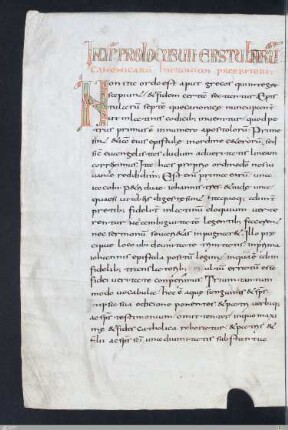 INCIPIT PROLOGUS IN EPISTULARUM
CANONICARUM HIERONIMI PRESBITERI
Non ita ordo est apud grecos qui integre
sapiunt & fidem rectam sectantur. Epis
tularum septe que canonice nuncupan
tur ut in latinis codicib; inuenitur quod pe
trus primus e in numero apostolorum. Prime
sint etia eius epistule in ordine ceterarum. Sed
sicut euangelistas dudum ad ueritatis lineam
correximus. Ita has proprio ordini do nos iu
uante reddidim. Est enim prima earu una
iacobi. petri due. iohannis tres & iude una
que si ut ab eis digeste sint ita quoq; ab inter
pretib; fidelit in latinum eloquium uerte
rentur nec ambiguitatem legentib; facerent
nec sermonum se uarietas inpugnar&. Illo pre
cipue loco ubi de unitate trinitatis in prima
iohannis epistula positum legimus in qua etia ab in
fidelib; translatorib; multu erratum esse
fidei ueritate conperimus. Trium tantum
modo uocabula hoc e aque sanguinis & sps
in ipsa sua editione ponentes & patris uerbiq;
ac sps testimonium omittentes in quo maxi
me & fides catholica roboratur & patris &
filii ac sps sci una diuinitatis substantia